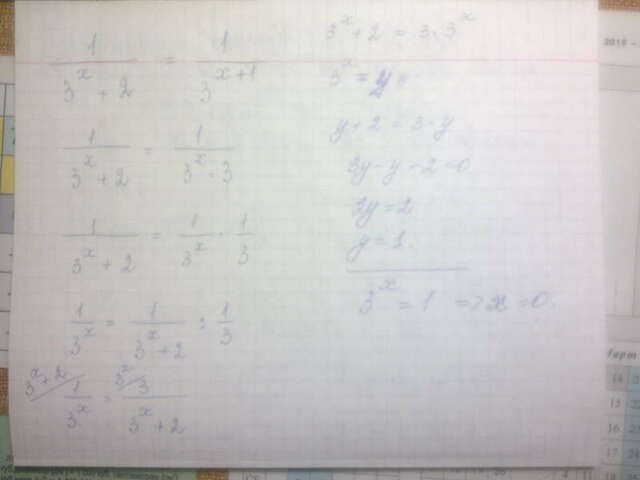 1/(3^x + 2) = 1/3^(x+1)
1/(3^x + 2) = 1/(3^x · 3)
1/(3^x + 2) = 1/3^x · 1/3
1/3^x = 1/(3^x + 2) : 1/3
3^x + 2 / 1/3^x = 3^x / 3/(3^x + 2)
3^x + 2 = 3 · 3^x
3^x = y
y + 2 = 3 · y
2y = 2
y = 1
3^x = 1 => x = 0.
2015 -
Март
14
15 22
16 23
17 24
18 25